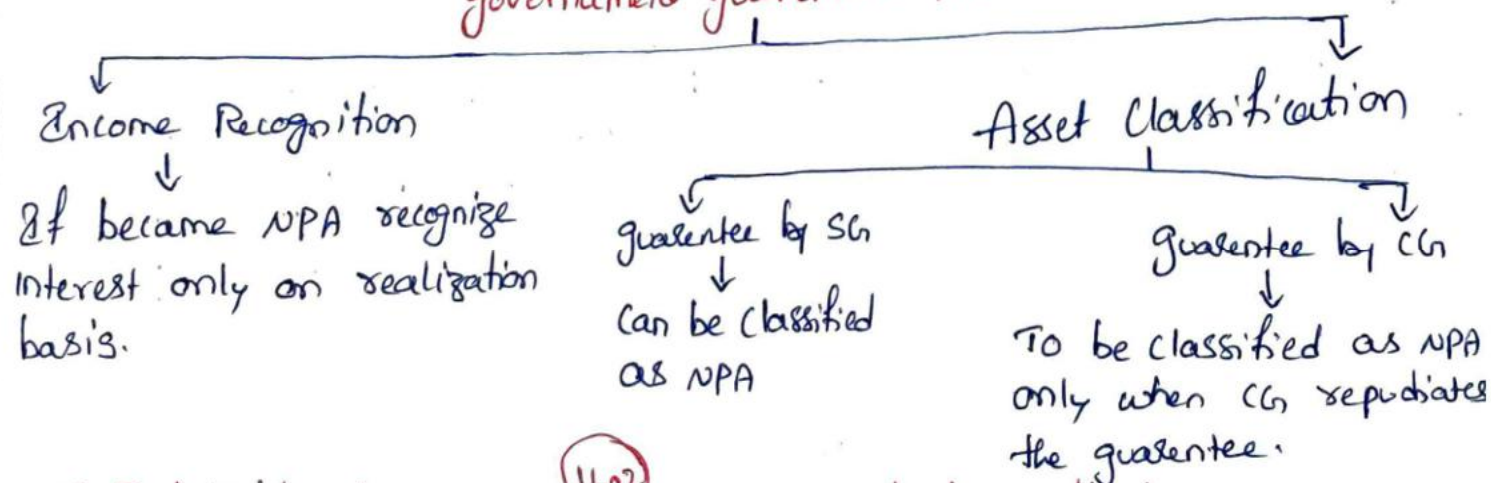 Income Recognition
If became NPA recognize
interest only on realization
basis.
Asset Classification
guarentee by SG
Can be classified
as NPA
guarentee by CG
To be classified as NPA
only when CG repudiates
the guarentee.